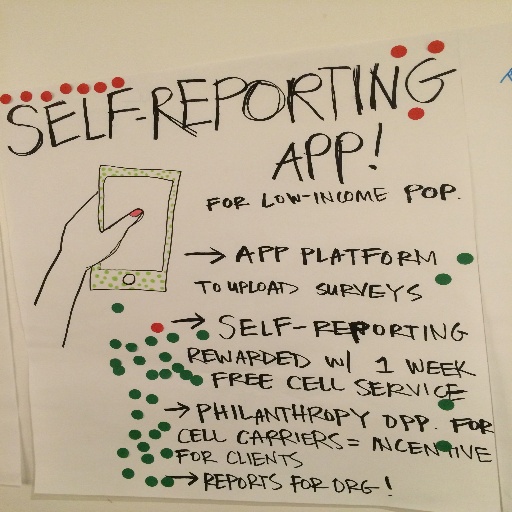 SELF-REPORTING
APP!
FOR LOW-INCOME POP.
→ APP PLATFORM
TO UPLOAD SURVEYS
→ SELF-REPORTING
REWARDED W/ 1 WEEK
FREE CELL SERVICE
→ PHILANTHROPY OPP. FOR
CELL CARRIERS = INCENTIVE
FOR CLIENTS
→ REPORTS FOR ORG!